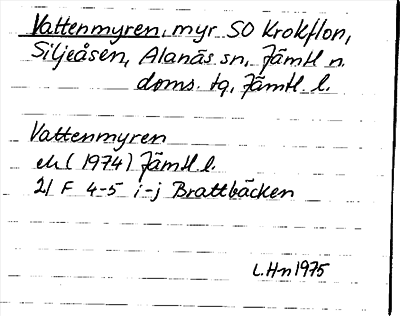 Vattenmyren, myr SO Krokflon,
Siljeåsen, Alanäs sn, Jämtl n.
doms. tg, Jämtl l.
Vattenmyren
ek (1974) Jämtl l.
21 F 4-5 i-j Brattbäcken
L.Hn 1975